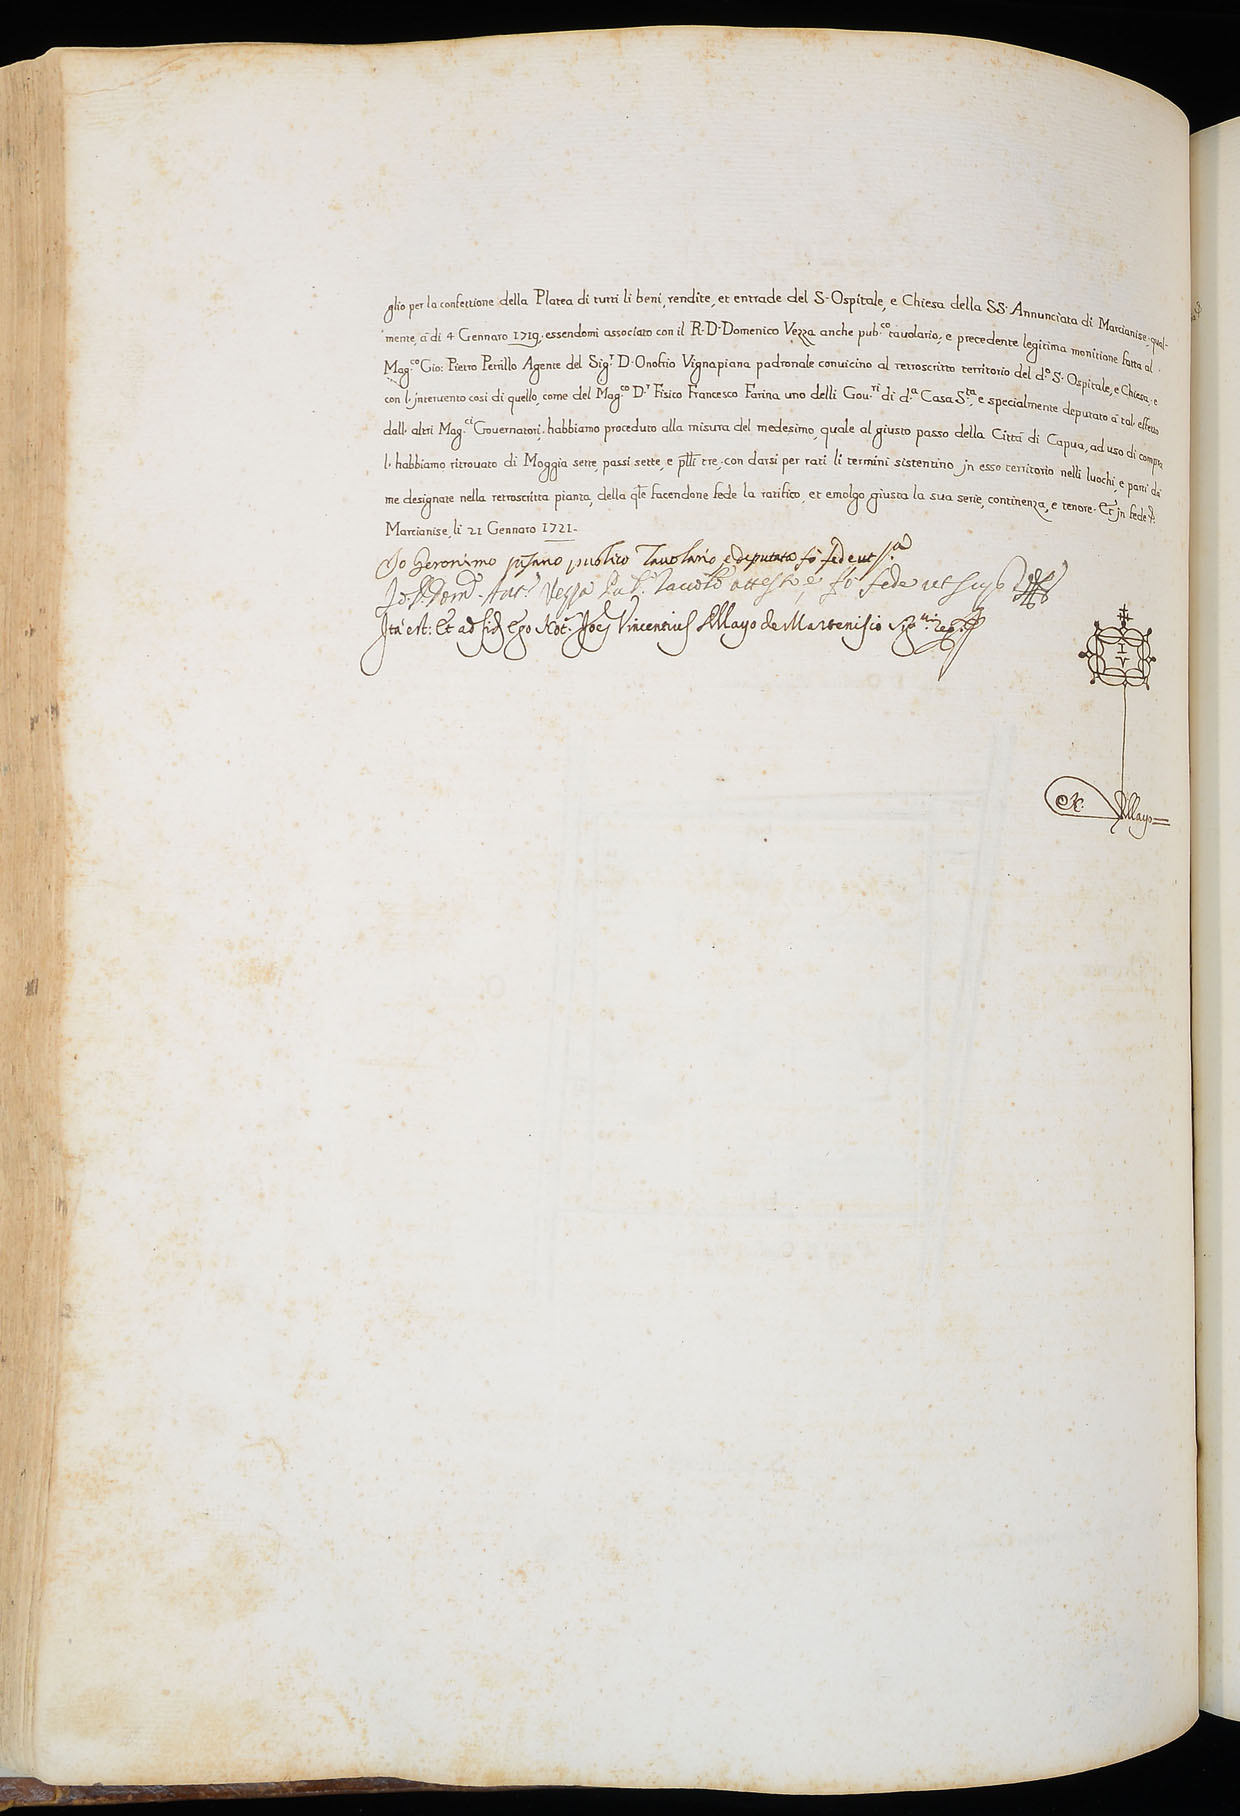 glio per la confettione della Platea di tutti li beni, rendite, et entrade del S. Ospitale, e Chiesa della SS. Annunciata di Marcianise, qual-
mente, à di 4 Gennaro 1719. essendomi associato con il R. D. Domenico Vezza anche pub.co tavolario, e precedente legitima monitione fatta al
Mag.co Gio: Pietro Perrillo Agente del Sig.r D. Onofrio Vignapiana padronale convicino al retroscritto territorio del d.o S. Ospitale, e Chiesa, e
con l'intervento cosi di quello, come del Mag.co D.r Fisico Francesco Farina uno delli Gov.ri di d.a Casa S.ta, e specialmente deputato à tal' effetto
dall' altri Mag.ci Governatori; habbiamo proceduto alla misura del medesimo, quale al giusto passo della Città di Capua, ad uso di compra
l' habbiamo ritrovato di Moggia sette, passi sette, e p.lli tre, con darsi per rati li termini sistentino in esso territorio nelli luochi, e parti da
me designate nella retroscritta pianta, della qle facendone fede la ratifico, et emolgo giusta la sua serie, continenza, e tenore. Et in fede &.
Marcianise, li 21 Gennaro 1721.
Io Geronimo pisano publico Tavolario, e deputato fò fede ut s.a
Vezza Pub. Tavol.o attesto, e fò fede ut sup.
Ita est: Et ad fid. Ego Not. Joes Vincentius Mayo de Martenisio
I V
N. Mayo